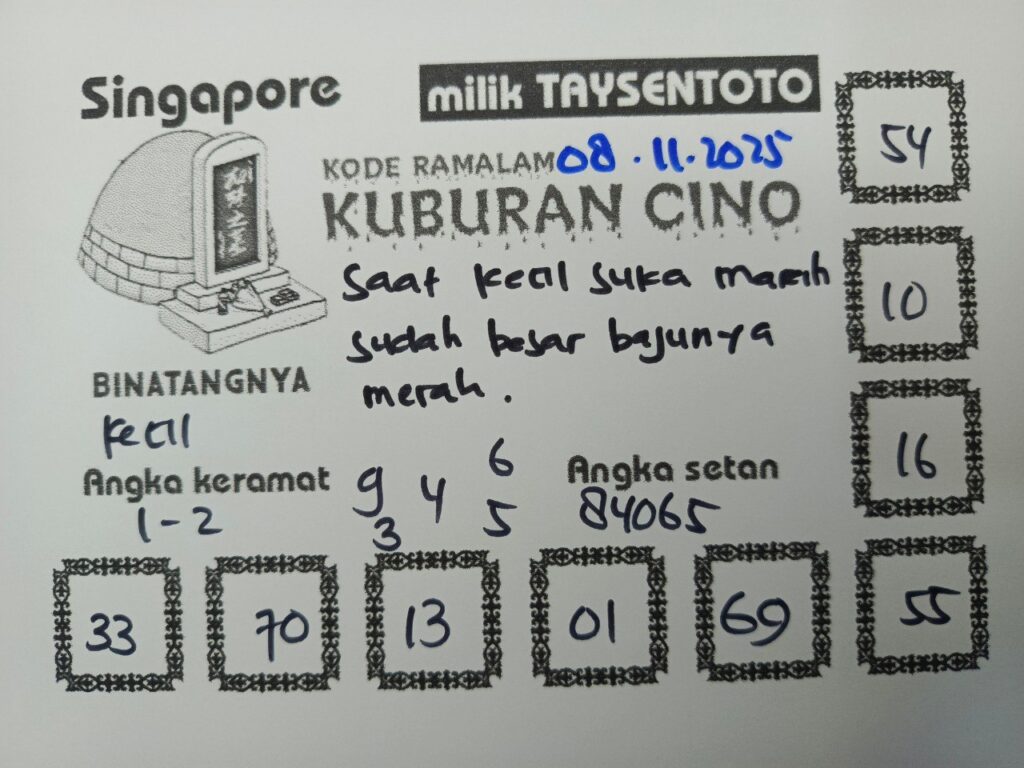 Singapore
milik TAYSENTOTO
KODE RAMALAM 08.11.2025
KUBURAN CINO
saat kecil suka
sudah besar bajunya
merah.
BINATANGNYA
kecil
Angka keramat
1-2
9 4 6
3 5
Angka setan
84065
54
10
16
33 70 13 01 69 55